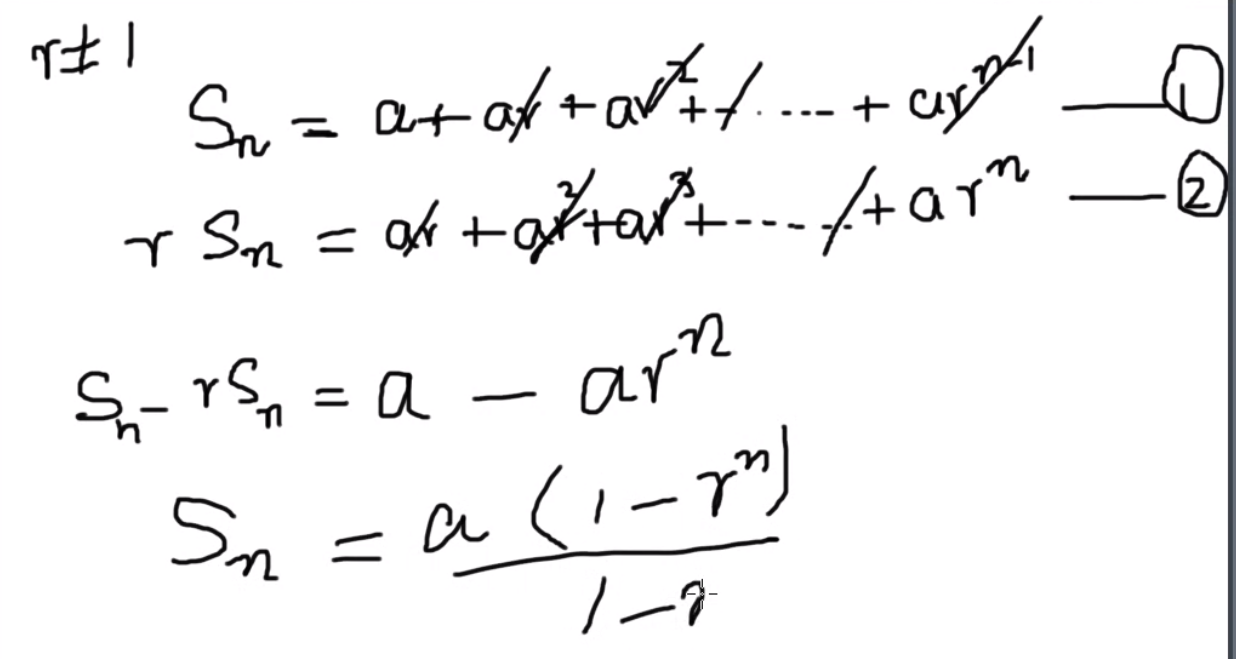 r ≠ 1
Sₙ = a + ar + ar² + ..... + arⁿ⁻¹ —— ①
r Sₙ = ar + ar² + ar³ + ...... + arⁿ —— ②
Sₙ - rSₙ = a - arⁿ
Sₙ = a (1 - rⁿ)
1 - r